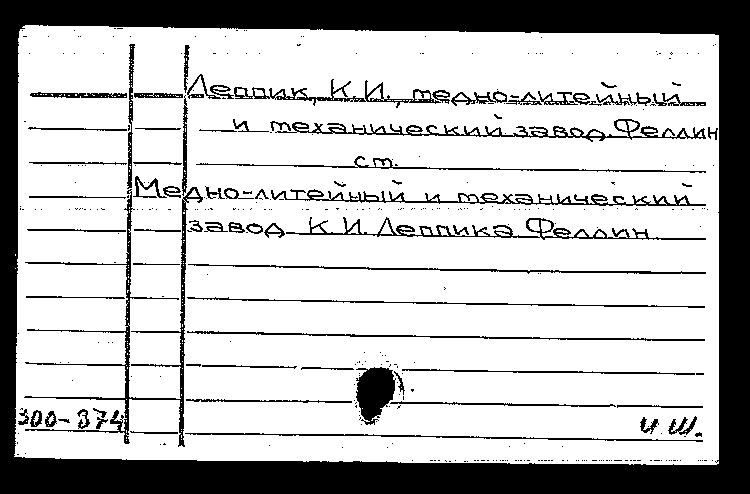 Леппик, К.И., медно-литейный
и механический завод. Феллин
ст.
Медно-литейный и механический
завод К.И. Леппика Феллин
300-374
и ш.